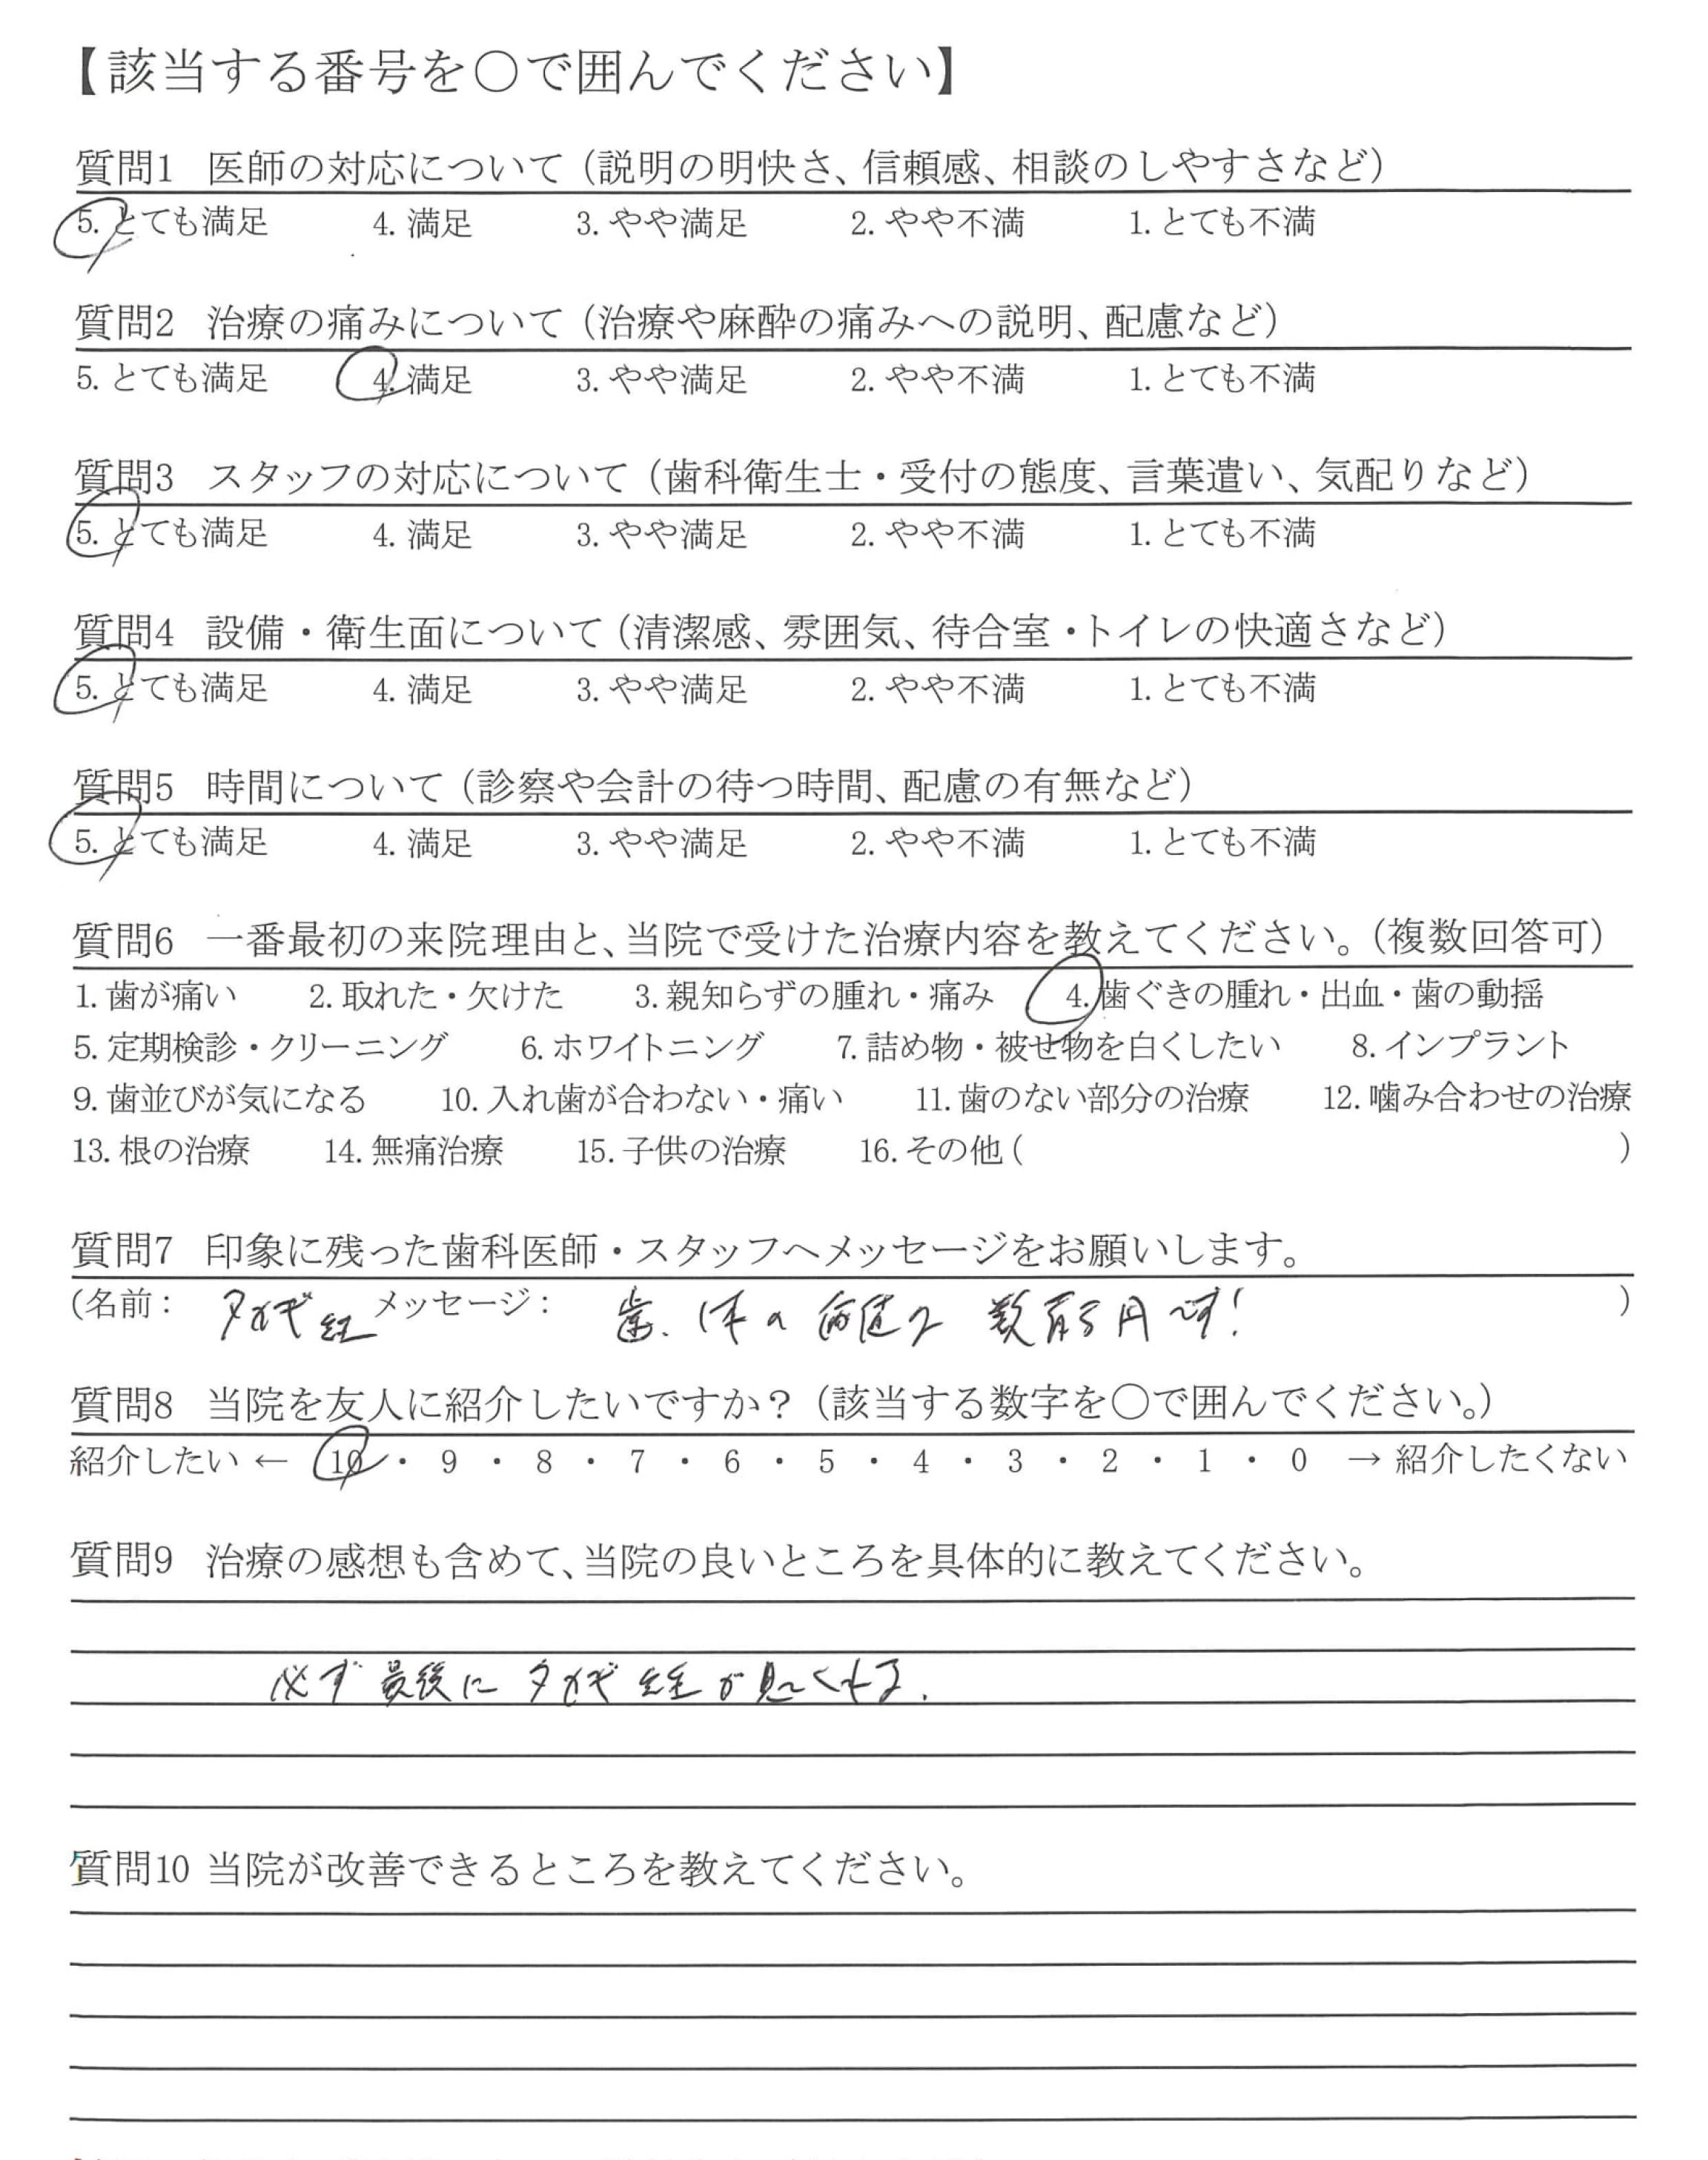 【該当する番号を○で囲んでください】
質問1 医師の対応について（説明の明快さ、信頼感、相談のしやすさなど）
5. とても満足 4. 満足 3. やや満足 2. やや不満 1. とても不満
質問2 治療の痛みについて（治療や麻酔の痛みへの説明、配慮など）
5. とても満足 4. 満足 3. やや満足 2. やや不満 1. とても不満
質問3 スタッフの対応について（歯科衛生士・受付の態度、言葉遣い、気配りなど）
5. とても満足 4. 満足 3. やや満足 2. やや不満 1. とても不満
質問4 設備・衛生面について（清潔感、雰囲気、待合室・トイレの快適さなど）
5. とても満足 4. 満足 3. やや満足 2. やや不満 1. とても不満
質問5 時間について（診察や会計の待つ時間、配慮の有無など）
5. とても満足 4. 満足 3. やや満足 2. やや不満 1. とても不満
質問6 一番最初の来院理由と、当院で受けた治療内容を教えてください。（複数回答可）
1. 歯が痛い 2. 取れた・欠けた 3. 親知らずの腫れ・痛み 4. 歯ぐきの腫れ・出血・歯の動揺
5. 定期検診・クリーニング 6. ホワイトニング 7. 詰め物・被せ物を白くしたい 8. インプラント
9. 歯並びが気になる 10. 入れ歯が合わない・痛い 11. 歯のない部分の治療 12. 噛み合わせの治療
13. 根の治療 14. 無痛治療 15. 子供の治療 16. その他（ ）
質問7 印象に残った歯科医師・スタッフへメッセージをお願いします。
（名前： メッセージ： 歯、体の ）
質問8 当院を友人に紹介したいですか？（該当する数字を○で囲んでください。）
紹介したい ← 10 ・ 9 ・ 8 ・ 7 ・ 6 ・ 5 ・ 4 ・ 3 ・ 2 ・ 1 ・ 0 → 紹介したくない
質問9 治療の感想も含めて、当院の良いところを具体的に教えてください。
必ず最後に が見てくれる.
質問10 当院が改善できるところを教えてください。